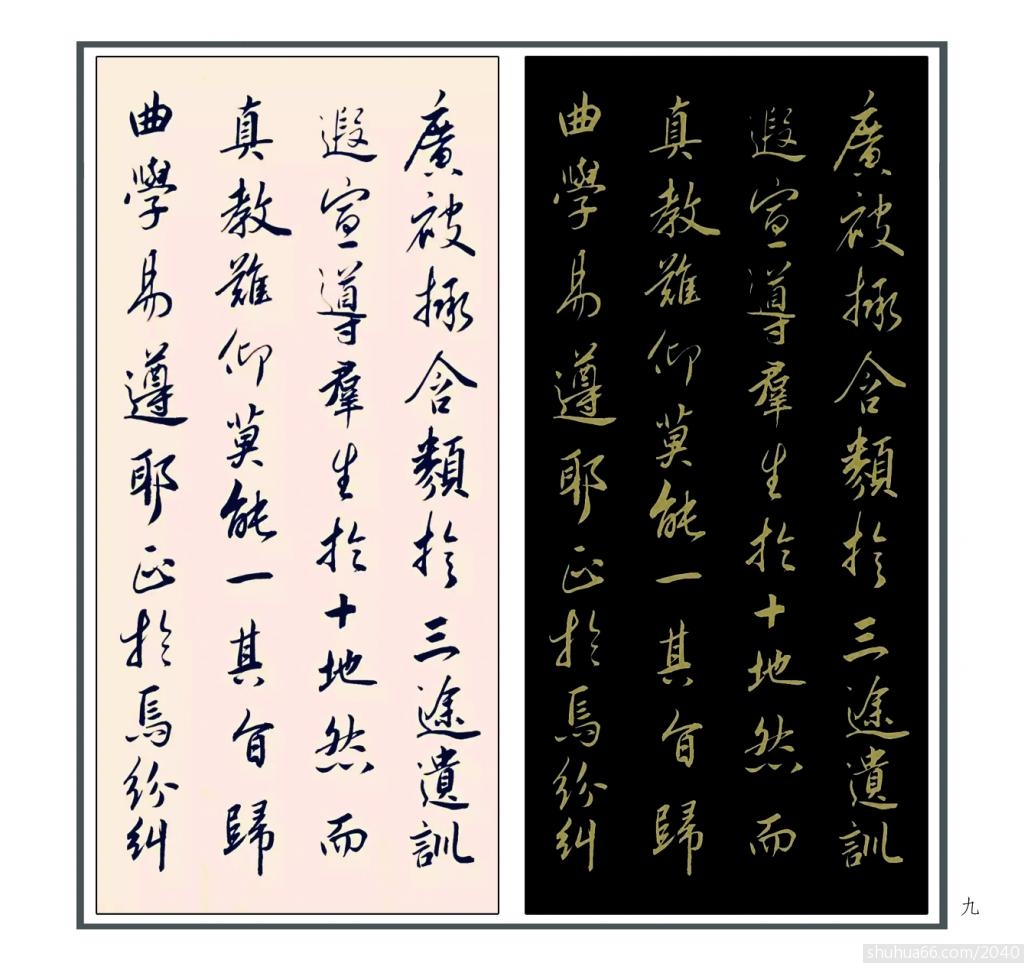 廣被拯含類於三途遺訓
遐宣導羣生於十地然而
真教難仰莫能一其旨歸
曲學易遵耶正於焉紛糾
廣被拯含類於三途遺訓
遐宣導羣生於十地然而
真教難仰莫能一其旨歸
曲學易遵耶正於焉紛糾
九
shuhua66.com/2040